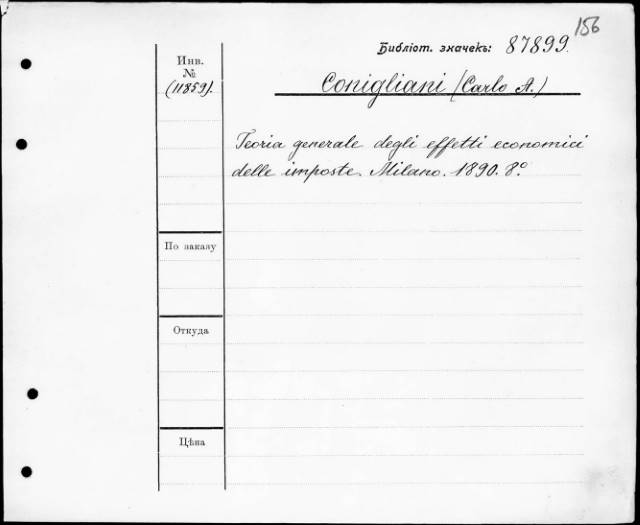 156
Библіот. значекъ: 87899.
Инв.
№
(11859).
Conigliani (Carlo A.)
Teoria generale degli effetti economici
delle imposte. Milano. 1890. 8º
По заказу
Откуда
Цѣна